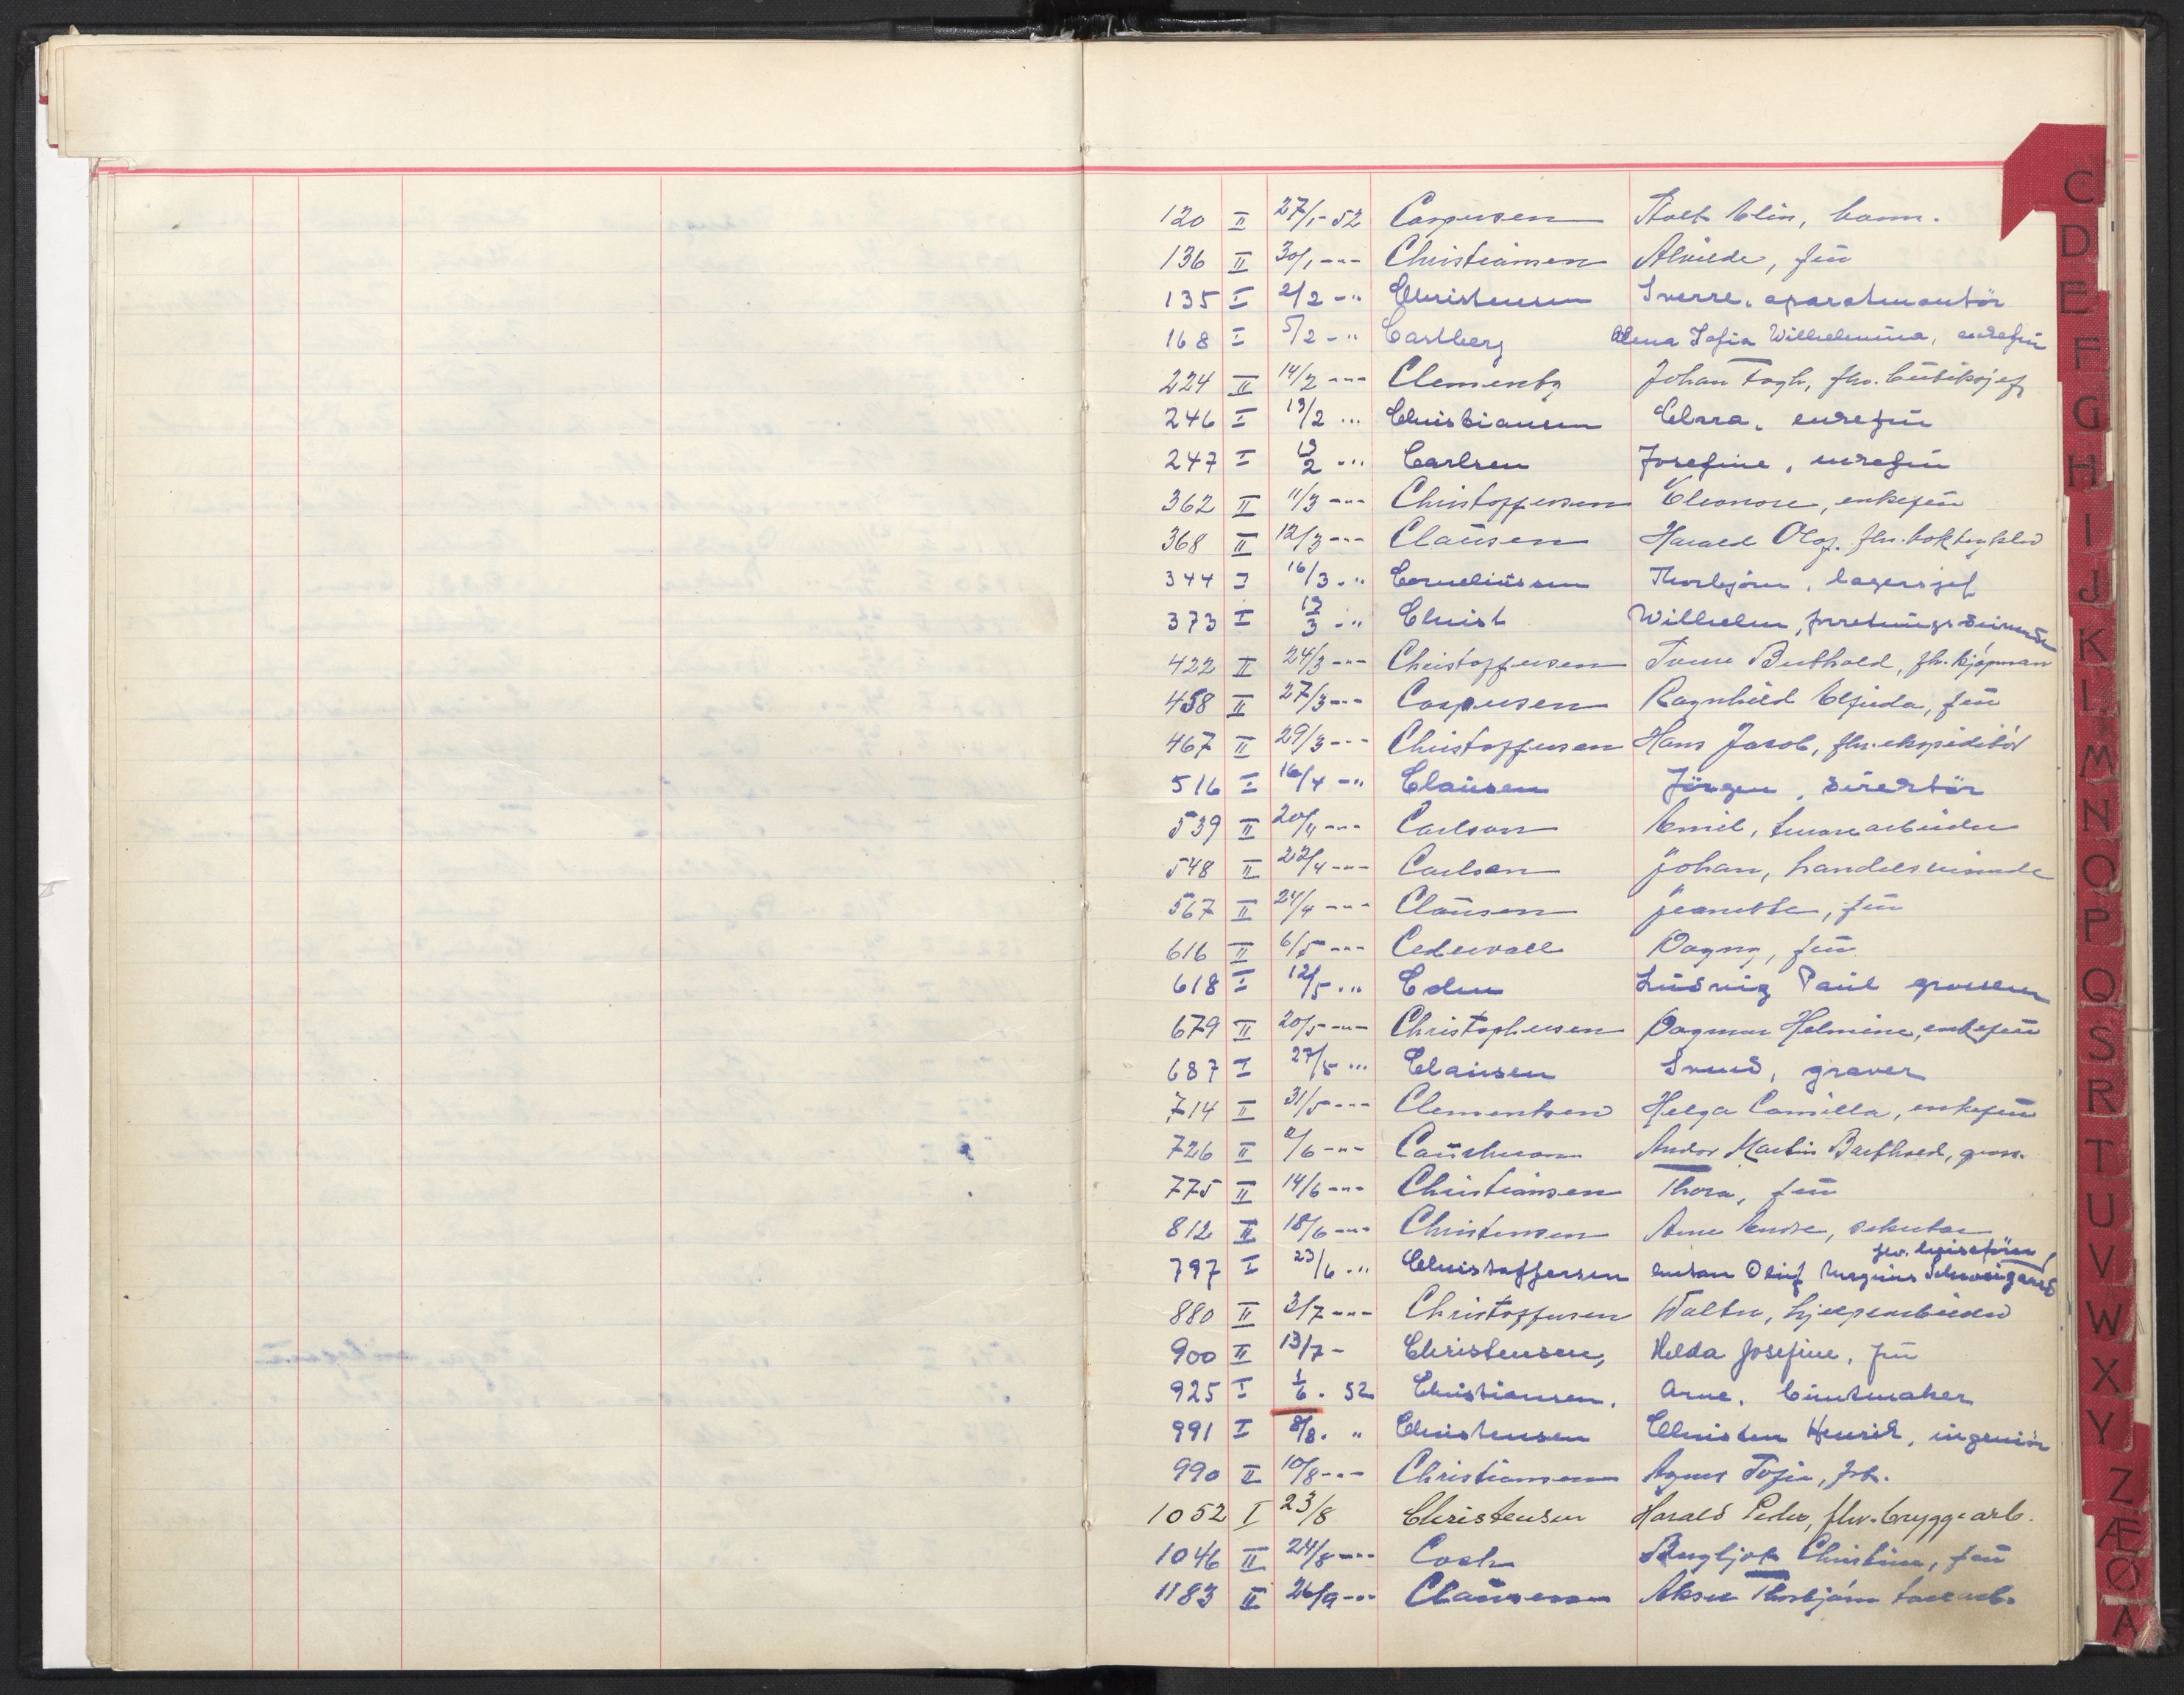 120 II 27/1-52 Caspersen Rolf Elin, barn.
136 II 30/1 -"- Christiansen Alvilde, frü
135 I 2/2 -" Christensen Sverre, aparatmontör
168 I 5/2 -" Carlberg Alma Sofia Wilhelmina, enkefrü
224 II 14/2 -"- Clementz Johan Fogh, fhv. bütiksjef
246 I 19/2 -" Christiansen Clara, enkefrü
247 I 19/2 -" Carlsen Josefine, enkefrü
362 II 11/3 -"- Christoffersen Eleonore, enkefrü
368 II 12/3 -"- Claüsen Harald Olaf, fhv. boktrykker
344 I 16/3 -" Corneliüssen Thorbjörn, lagersjef
373 I 19/3 -" Christ Wilhelm, forretningsdrivende
422 II 24/3 -"- Christoffersen Berthold, fhv. kjöpmann
458 II 27/3 -"- Caspersen Ragnhild Elfrida, frü
467 II 29/3 -"- Christoffersen Hans Jacob, fhv. ekspeditör
516 I 16/4 -" Claüsen Jörgen, direktör
539 II 20/4 -"- Carlson Emil, murarbeider
548 II 22/4 -"- Carlsen Johan, handelsreisende
567 II 24/4 -"- Claüsen Jeanette, frü
616 II 6/5 -"- Cedervall Dagny, frü
618 I 12/5 -" Lüdvig Paül grosserer
679 II 20/5 -"- Christophersen Dagmar Helmine, enkefrü
687 I 27/5 -" Claüsen Svend, graver
714 II 31/5 -"- Clementsen Helga Camilla, enkefrü
726 II 2/6 -"- Andor Martin Barthold, gross.
775 II 14/6 -"- Christiansen Thora, frü
812 II 18/6 -"- Christensen Arne Endre, sekretær
fhv. lysisefører
797 I 23/6 -" Christoffersen Anton Olüf Magnüs Schweigaard
880 II 3/7 -"- Christoffersen Walter, hjelpearbeider
900 II 13/7 - Christensen, Helda Josefine, frü
925 I 1/6 . 52 Christiansen, Arne, büntmaker
991 I 8/8. " Christensen Christen Henrik, ingeniör
990 II 10/8 -"- Christiansen Agnes Sofie, frk.
1052 I 23/8 Christensen Harald Peder, fhv. bryggearb.
1046 II 24/8 -"- Cock Bergljot Christine, frü
1183 II 26/9 -"- Claüsen Aksel Thorbjörn
C
D
E
F
G
H
I
J
K
L
M
N
O
P
Q
S
R
T
U
V
W
X
Y
Z
Æ
Ø
A